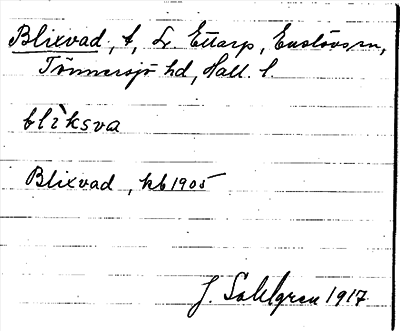 Blixvad, t, L. Ettarp, Enslövs sn,
Tönnersjö hd, Hall. l.
blìksva
Blixvad, kb 1905
J. Sahlgren 1917